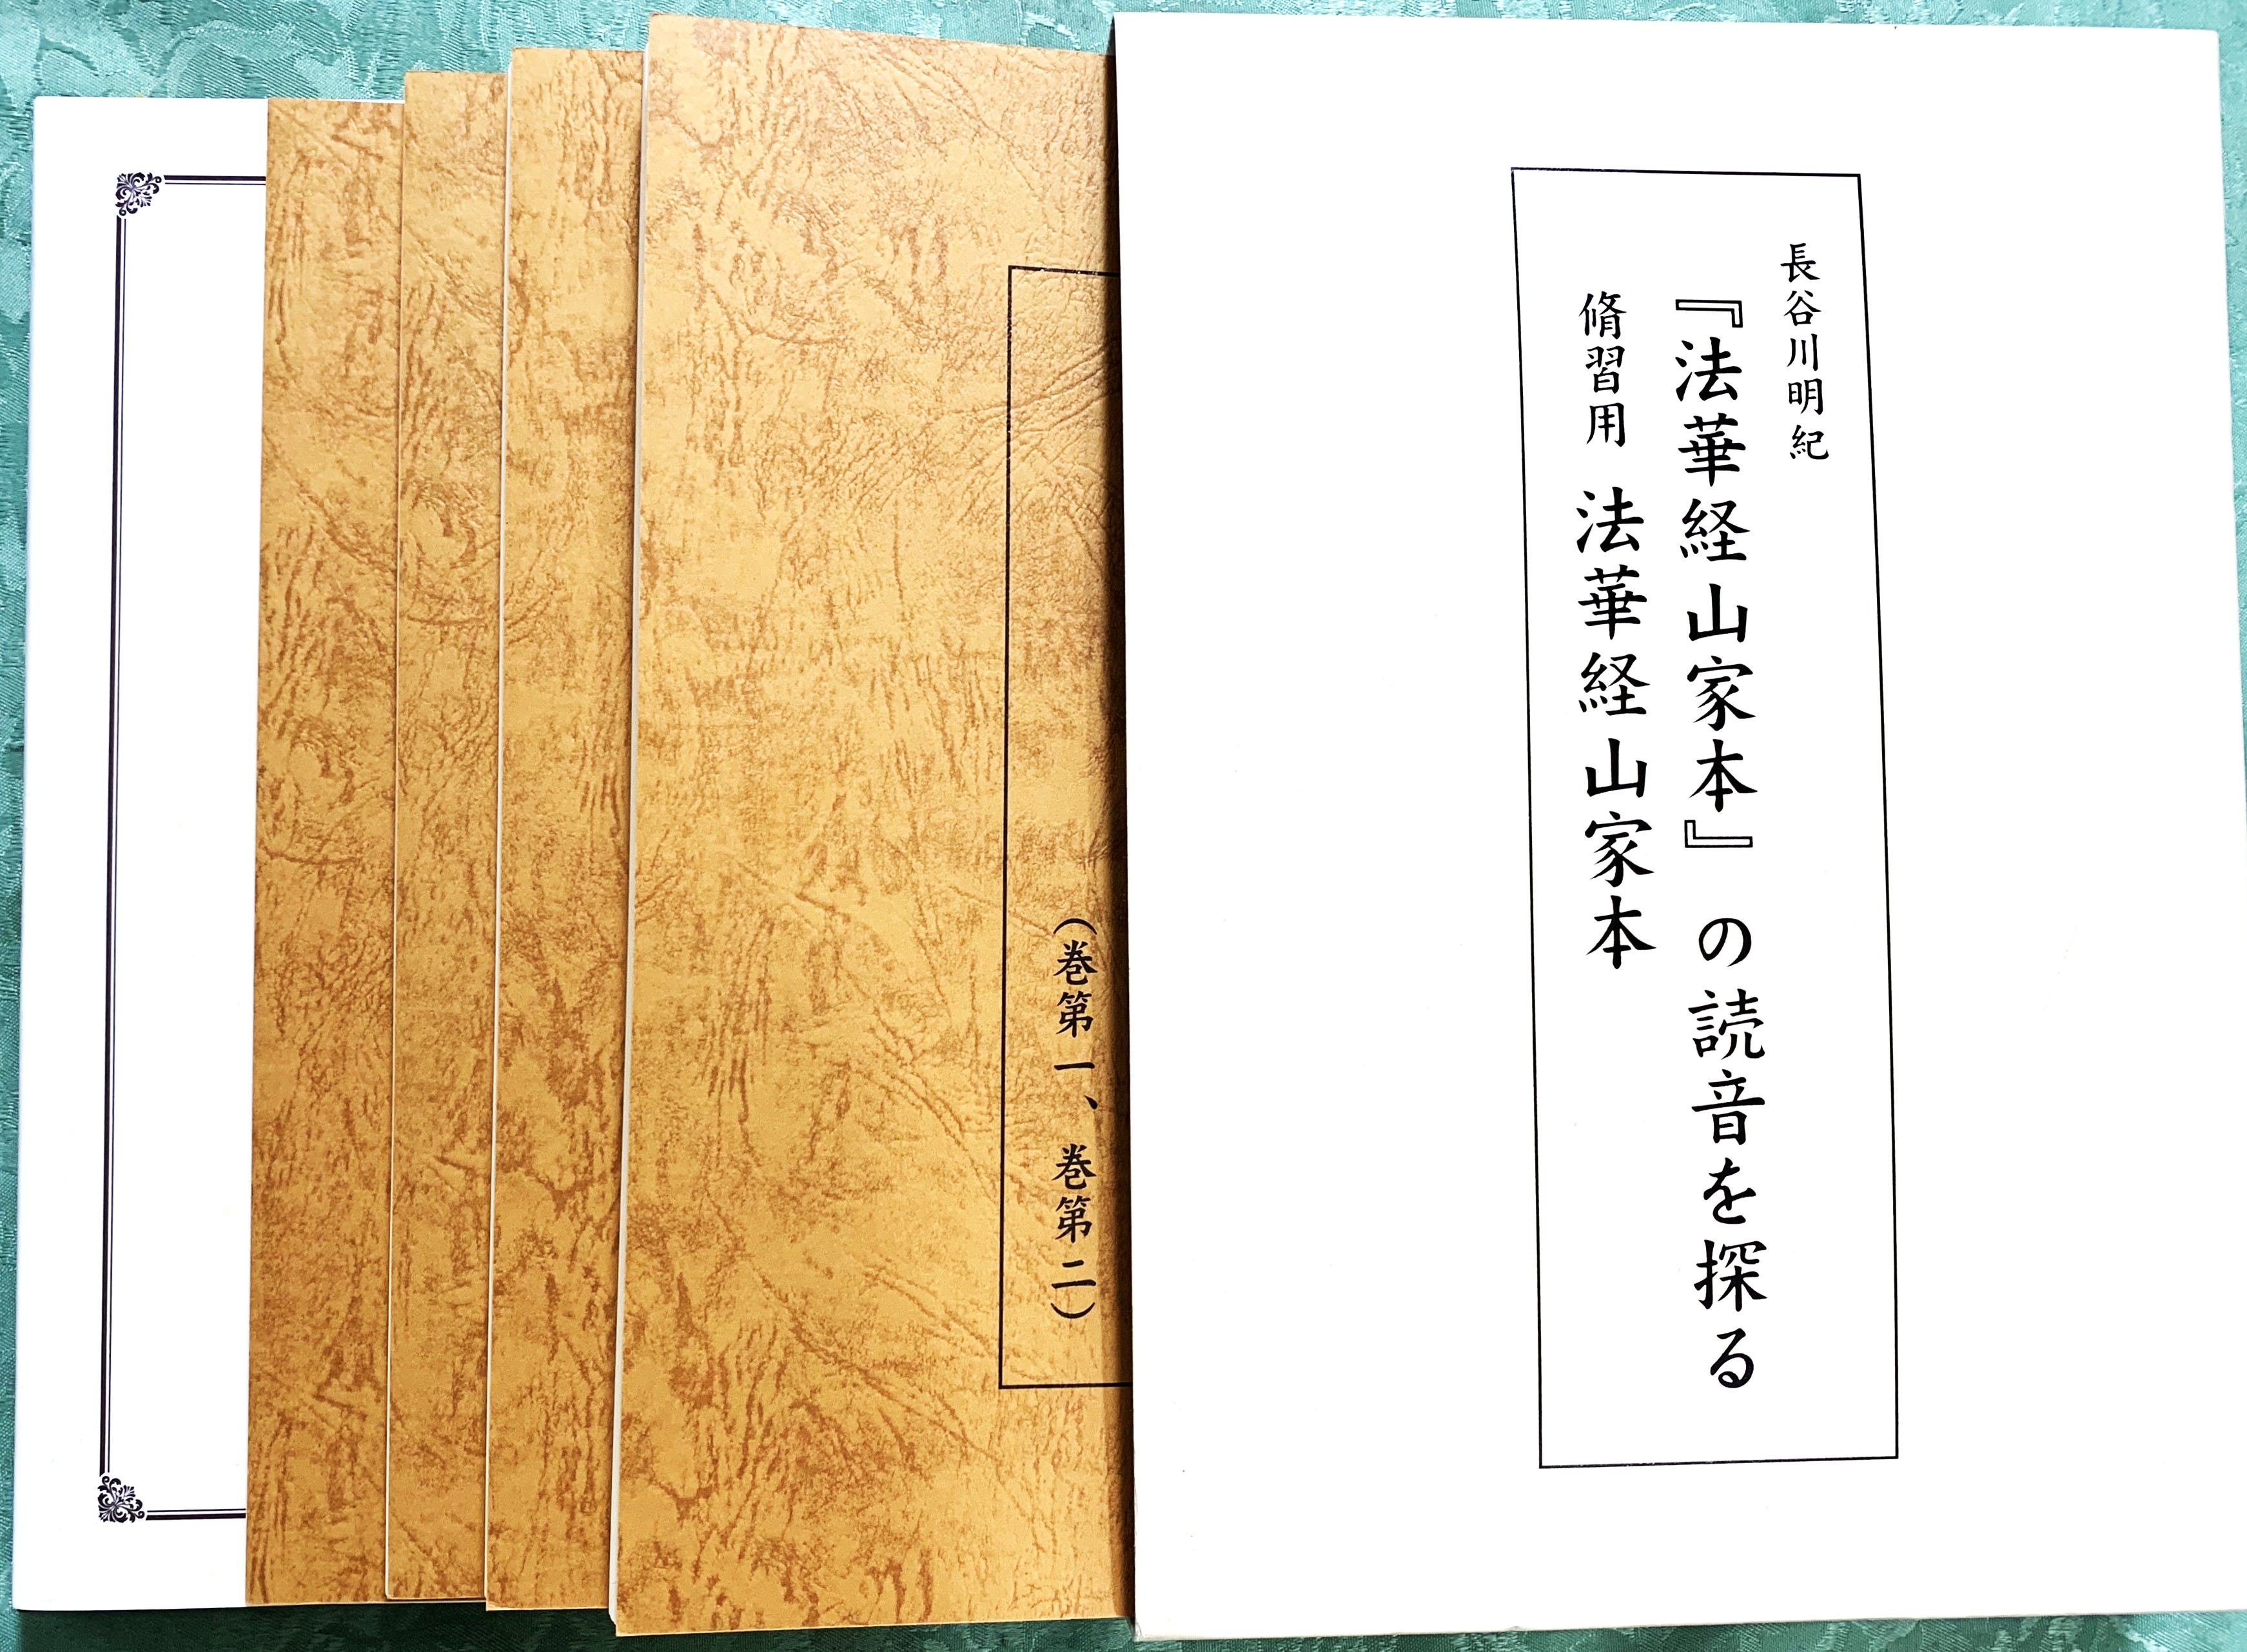 長谷川明紀
『法華経山家本』の読音を探る
脩習用 法華経山家本
(巻第一、巻第二)